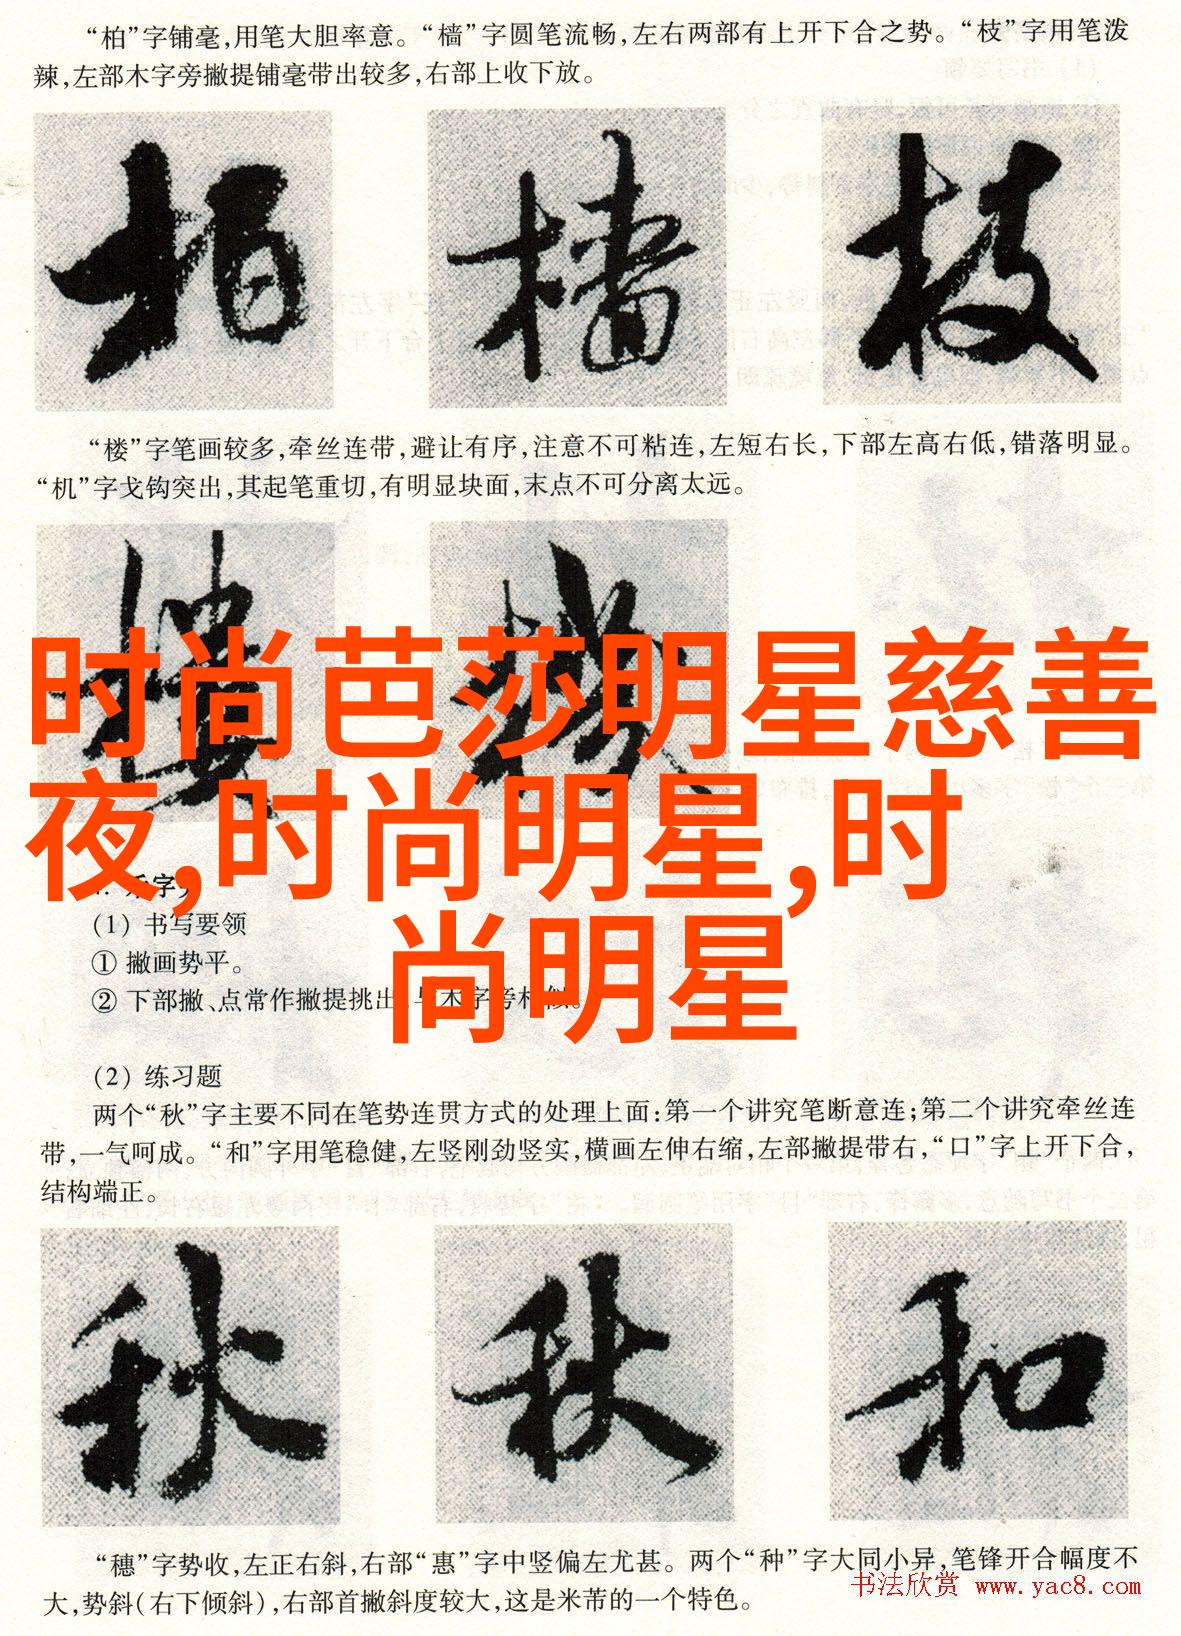 “柏”字铺毫,用笔大胆率意。“樯”字圆笔流畅,左右两部有上开下合之势。“枝”字用笔泼
辣,左部木字旁撇提铺毫带出较多,右部上收下放。
柏 樯 枝
“楼”字笔画较多,牵丝连带,避让有序,注意不可粘连,左短右长,下部左高右低,错落明显。
“机”字戈钩突出,其起笔重切,有明显块面,末点不可分离太远。
时尚芭莎明星慈善
夜,时尚明星,时
尚明星
(1) 书写要领
① 撇画势平。
② 下部撇、点常作撇提挑出
(2) 练习题
两个“秋”字主要不同在笔势连贯方式的处理上面:第一个讲究笔断意连;第二个讲究牵丝连
带,一气呵成。“和”字用笔稳健,左竖刚劲竖实,横画左伸右缩,左部撇提带右,“口”字上开下合,
结构端正。
秋 秋 和
“穗”字势收,左正右斜,右部“惠”字中竖偏左尤甚。两个“种”字大同小异,笔锋开合幅度不
大,势斜(右下倾斜),右部首撇斜度较大,这是米芾的一个特色。
书法欣赏 www.yac8.com